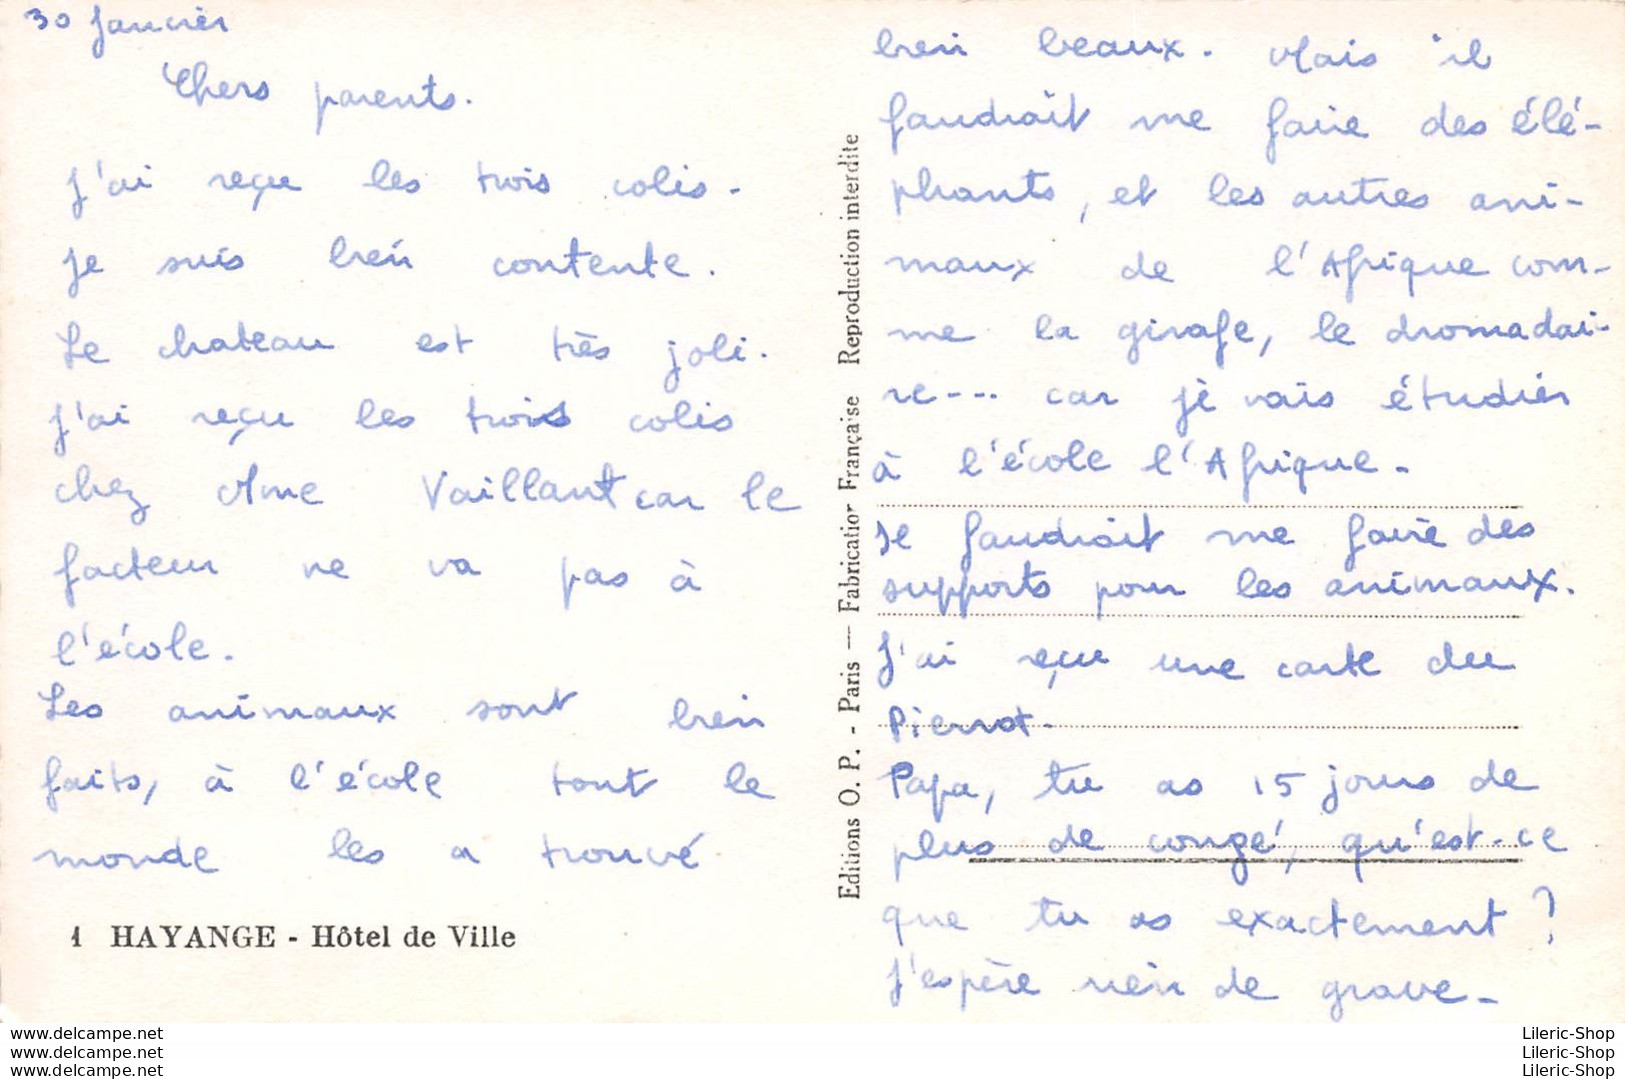 30 Janvier
Chers parents.
J'ai reçu les trois colis.
Je suis bien contente.
Le chateau est très joli.
J'ai reçu les trois colis
chez Mme Vaillant car le
facteur ne va pas à
l'école.
Les animaux sont bien
faits, à l'école tout le
monde les a trouvé
1 HAYANGE - Hôtel de Ville
Editions O. P. - Paris — Fabrication Française Reproduction interdite
bien beaux. Mais il
faudrait me faire des élé-
phants, et les autres ani-
maux de l'Afrique com-
me la girafe, le dromadai-
re--- car je vais étudier
à l'école l'Afrique.
Je faudrait me faire des
supports pour les animaux.
J'ai reçu une carte du
Pierrot.
Papa, tu as 15 jours de
plus de congé, qu'est-ce
que tu as exactement ?
J'espère rien de grave.
www.delcampe.net
www.delcampe.net
www.delcampe.net
Lileric-Shop
Lileric-Shop
Lileric-Shop